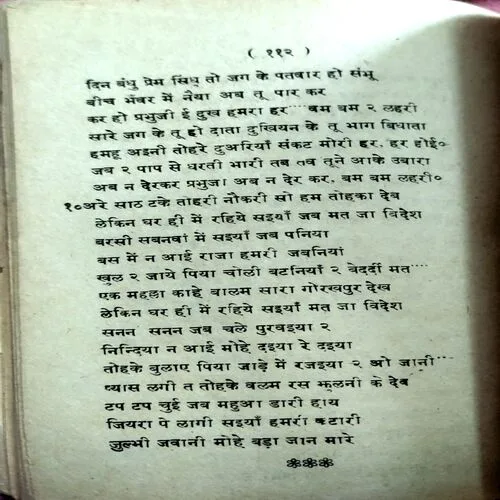 ( ११२ )
दिन बंधु प्रेम सिंधु तो जग के पतवार हो संभू
बीच भंवर में नैया अब तू पार कर
कर हो प्रभुजी ई दुख हमरा हर˙˙˙˙बम बम २ लहरी
सारे जग के तू हो दाता दुखियन के तू भाग बिधाता
हमहू अइनी तोहरे दुअरियाँ संकट मोरी हर, हर होई०
जब २ पाप से धरती भारी तब तव तूने आके उबारा
अब न देरकर प्रभुजा अब न देर कर, बम बम लहरी०
१०अरे साठ टके तोहरी नौकरी सो हम तोहका देब
लेकिन घर ही में रहिये सइयाँ जब मत जा विदेश
बरसी सबनवां में सइयाँ जब पनिया
बस में न आई राजा हमरी जबनियां
खुल २ जाये पिया चोली बटनियाँ २ बेदर्दी मत˙˙˙˙
एक महल्ला काहे बालम सारा गोरखपुर देख
लेकिन घर ही में रहिये सइयाँ मत जा विदेश
सनन सनन जब चले पुरवइया २
निन्दिया न आई मोहे दइया रे दइया
तोहके बुलाए पिया जाड़े में रजइया २ ओ जानी˙˙˙˙
प्यास लगी त तोहके बलम रस झुलनी के देब
टप टप चुई जब महुआ डारी हाय
जियरा पे लागी सइयाँ हमरी कटारी
जुल्मी जवानी मोहे बड़ा जान मारे